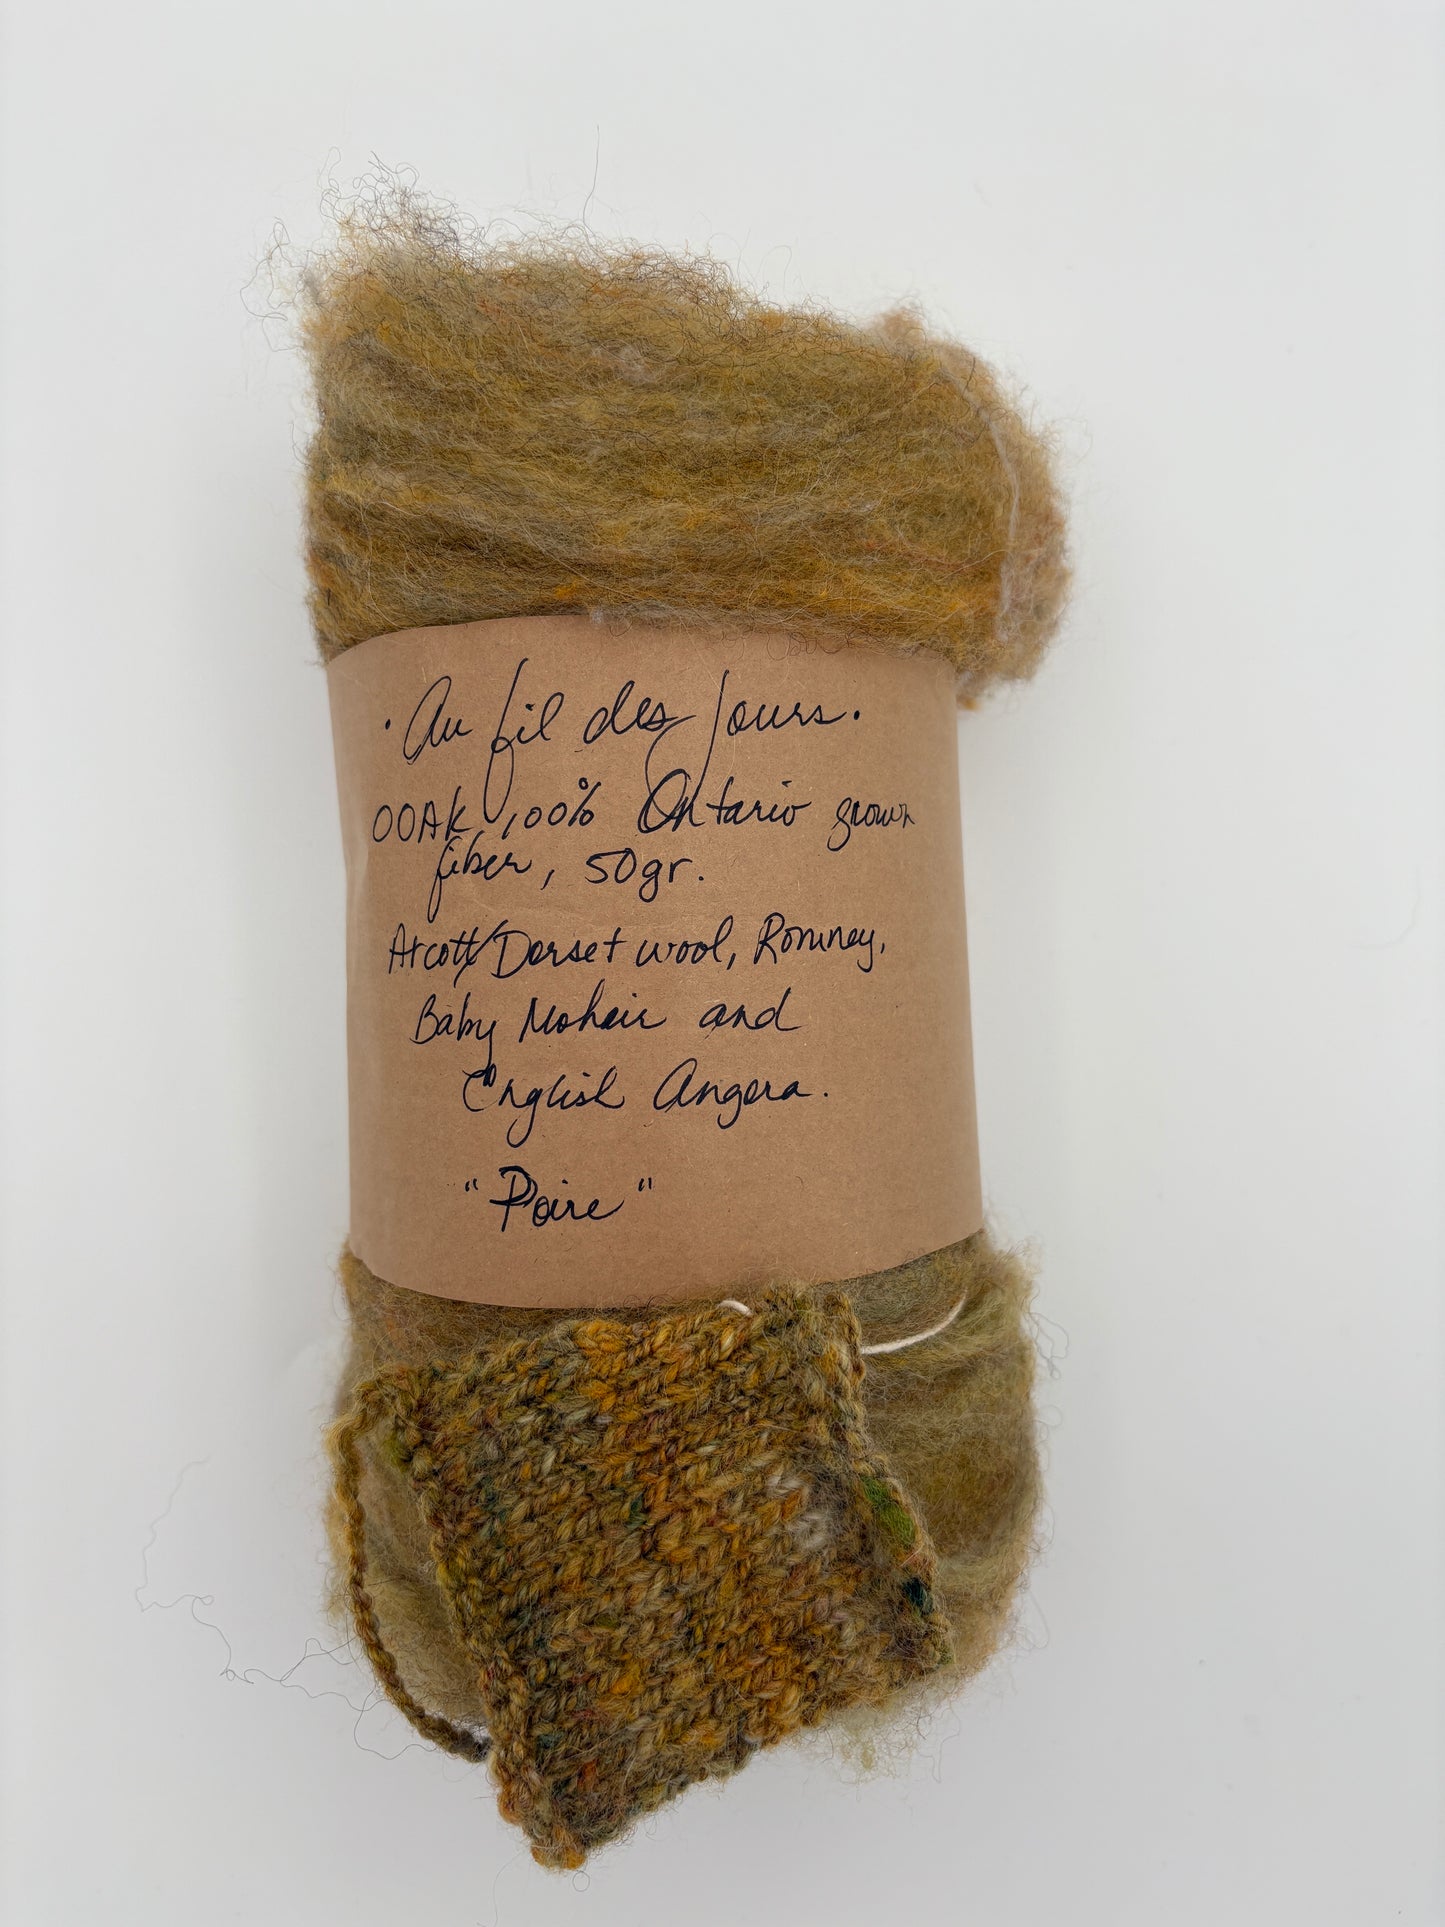 . Au fil des Jours.
OOAK, 100% Ontario grown
fiber, 50gr.
Arcott/Dorset wool, Romney,
Baby Mohair and
English Angora.
"Poire"